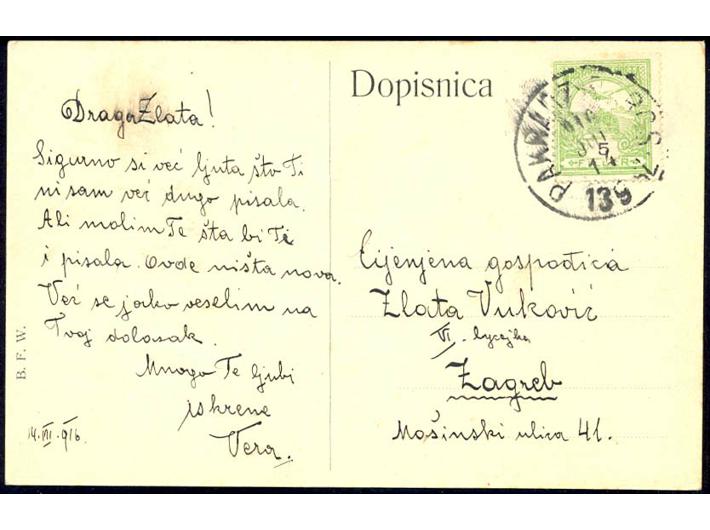 Draga Zlata!
Sigurno si već ljuta što Ti
nisam već dugo pisala.
Ali molim Te šta bi Ti
i pisala. Ovde ništa nova.
Već se jako veselim na
Tvoj dolazak.
Mnogo Te ljubi
iskrena
Vera.
14. III. 916.
B. F. W.
Dopisnica
Cijenjena gospođica
Zlata Vuković
VI. lycejka
Zagreb
Mošinski ulica 41.
PAKRAC
5
14
139